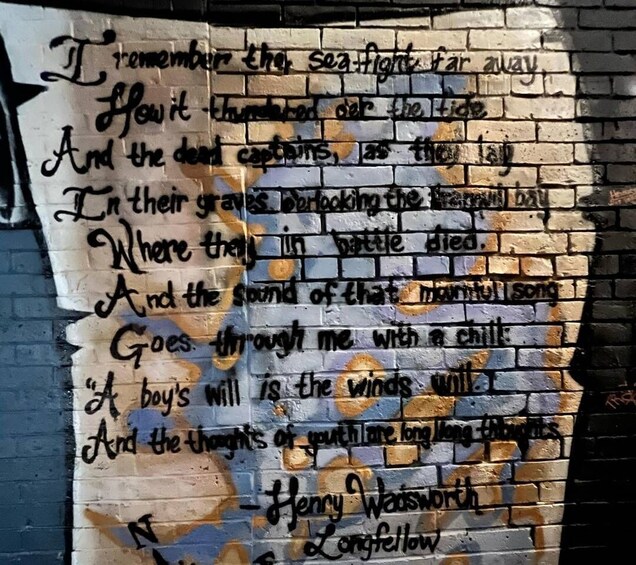 I remember the sea-fight far away,
How it thundered o'er the tide
And the dead captains, as they lay
In their graves o'erlooking the tranquil bay
Where they in battle died.
And the sound of that mournful song
Goes through me with a chill:
"A boy's will is the winds will.
And the thoughts of youth are long long thoughts
- Henry Wadsworth
Longfellow
N